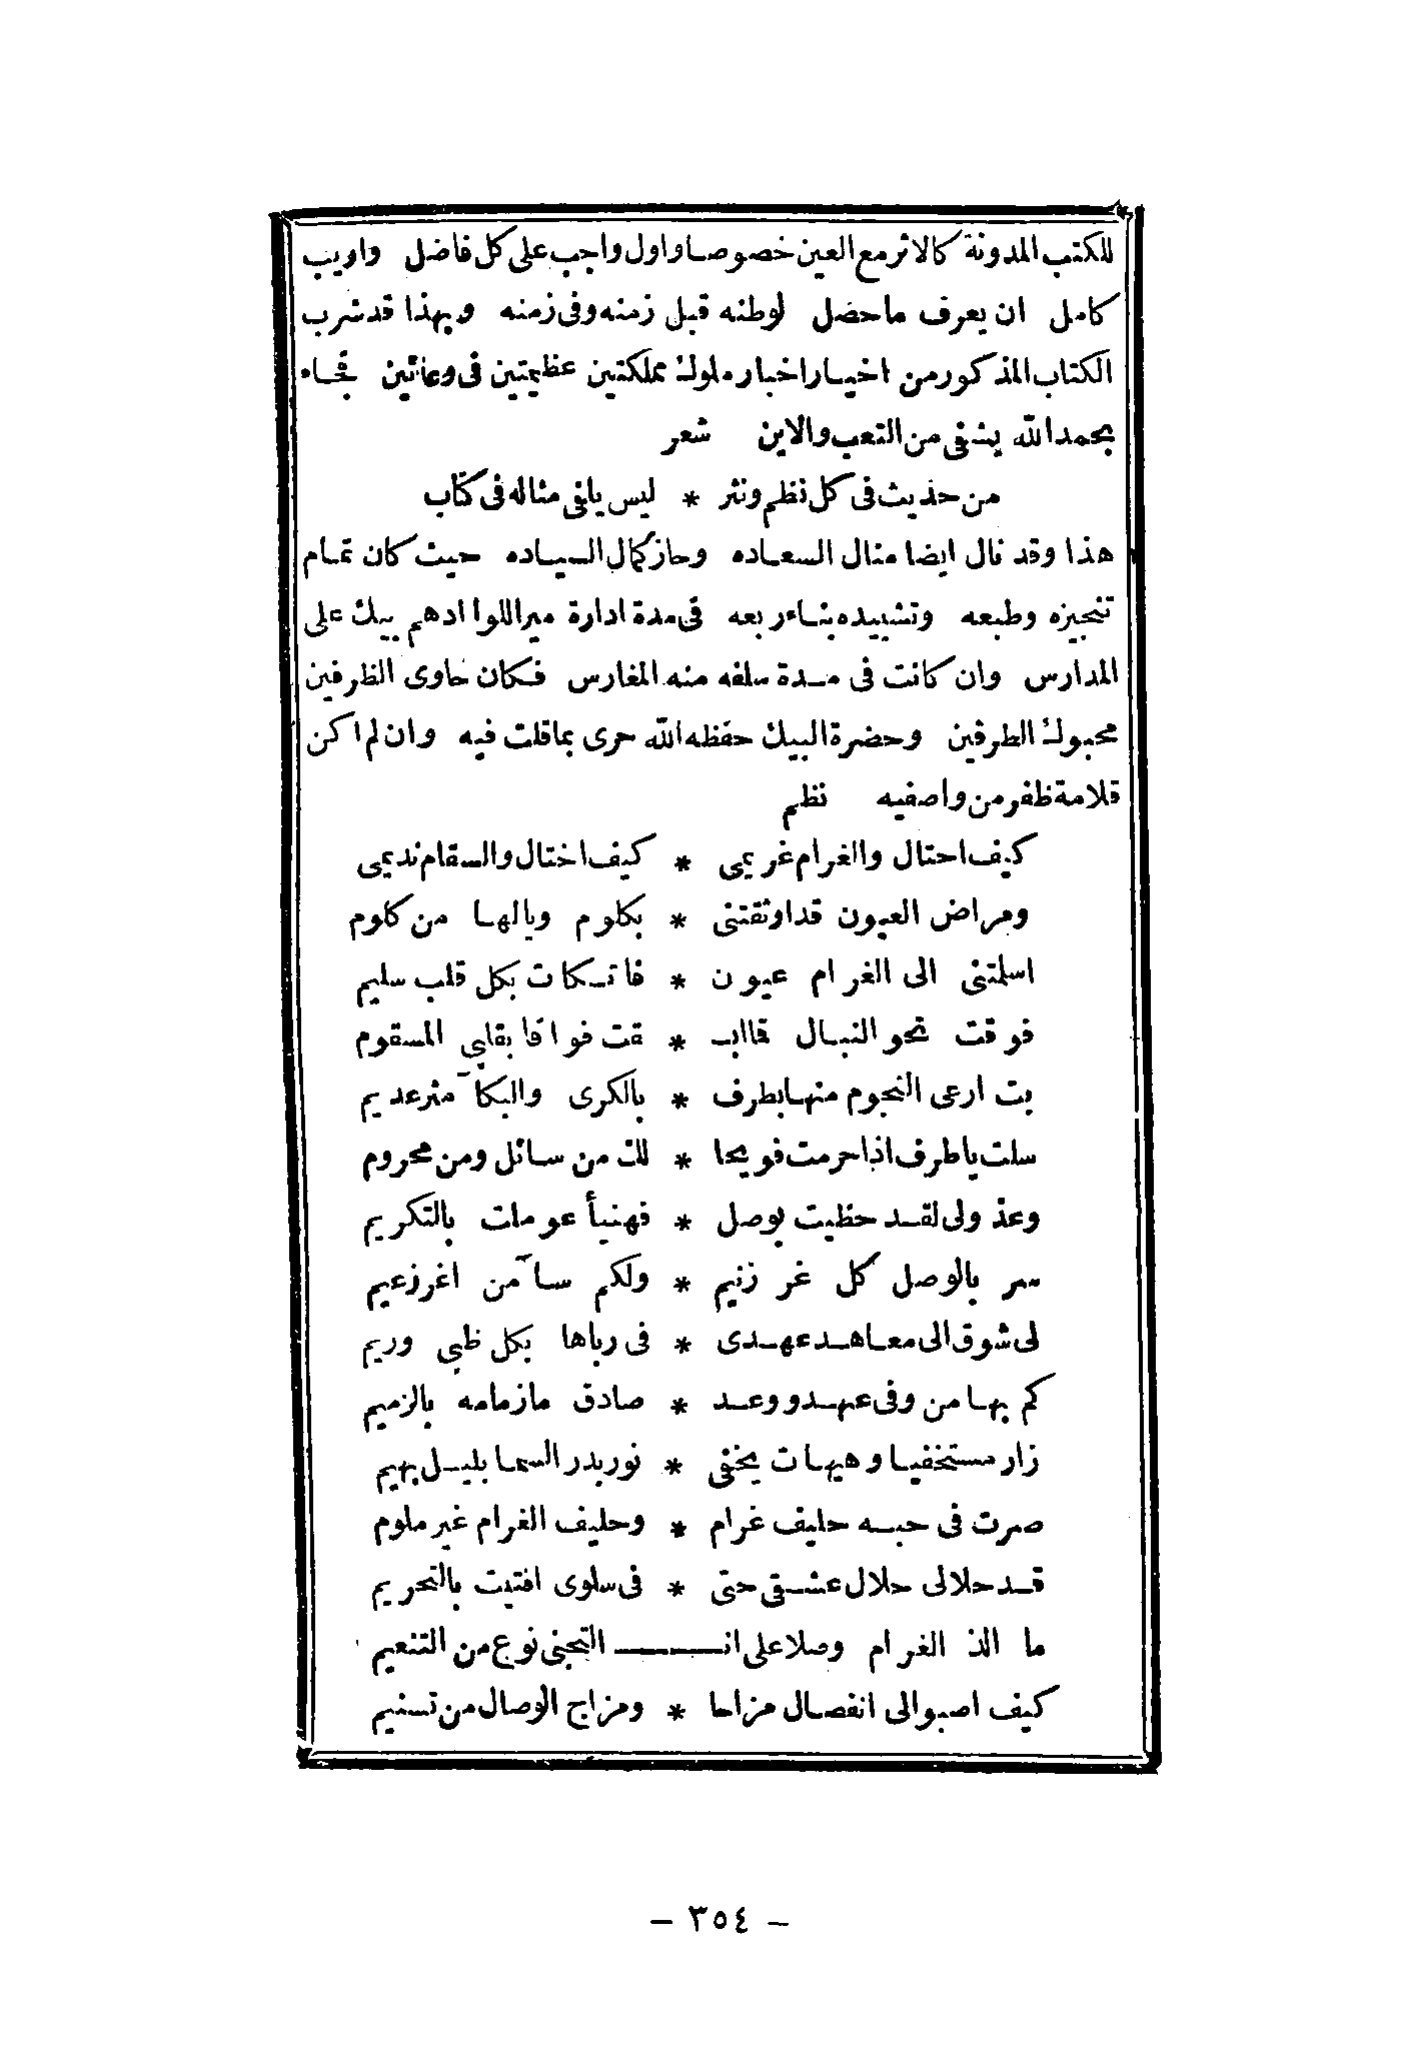 للكتب المدونة كالاثر مع العين خصوصا واول واجب على كل فاضل واريب
كامل ان يعرف ماحضل لوطنه قبل زمنه وفى زمنه وبهذا قد شرب
الكتاب المذكور من اخيار اخبار ملوك مملكتين عظيمتين فى وعائين فجاء
بحمد الله يشفى من التعب والاين شعر
من حذيث فى كل نظم ونثر * ليس يلفى مثاله فى كتاب
هذا وقد نال ايضا منال السعاده وحاز كمال السياده حيث كان تمام
تنجيزه وطبعه وتشييده بناء ربعه فى مدة ادارة مير اللوا ادهم بيك على
المدارس وان كانت فى مدة سلفه منه المغارس فكان حاوى الظرفين
محبوك الطرفين وحضرة البيك حفظه الله حرى بما قلت فيه وان لم اكن
قلامة ظفر من واصفيه نظم
كيف احتال والغرام غريمى * كيف اختال والسقام نديمى
ومراض العيون قد اوثقتنى * بكلوم ويالها من كلوم
اسلمتنى الى الغرام عيون * فاتكات بكل قلب سليم
فوقت نحو النبال فاالبـ * قت فوافا بقلبى المسقوم
بت ارعى النجوم منها بطرف * بالكرى والبكآ مثر عديم
سلت ياطرف اذا حرمت فويحا * لك من سائل ومن محروم
وعذولى لقد حظيت بوصل * فهنيأ عوملت بالتكريم
سر بالوصل كل غر زنيم * ولكم سآمن اغر زعيم
لى شوق الى معاهد عهدى * فى رباها بكل ظبى وريم
كم بها من وفى عهد ووعد * صادق مازمامه بالزميم
زار مستخفيا وهيهات يخفى * نور بدر السما بليل بهيم
صرت فى حبه حليف غرام * وحليف الغرام غير ملوم
قد حلالى حلال عشقى حتى * فى سلوى افتيت بالتحريم
ما الذ الغرام وصلا على انـــــ التجنى نوع من التنعيم
كيف اصبو الى انفصال مزاحا * ومزاج الوصال من تسنيم
- ٣٥٤ -